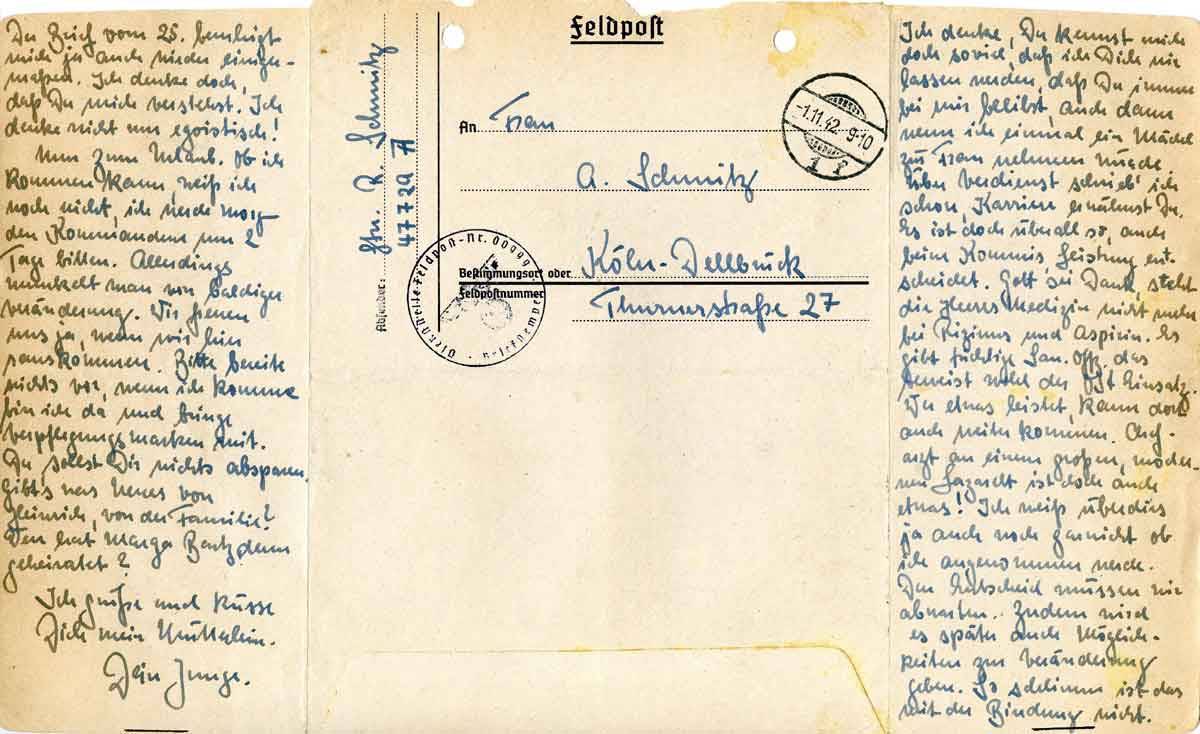 Feldpost
An Frau
A. Schmitz
Bestimmungsort oder
Feldpostnummer
Köln-Dellbrück
Thurnerstraße 27
Absender: R. Schmitz
47724 A
-1.11.42. 9-10
Feldpost-Nr. 00999
Ich denke, Du kennst mich
doch soviel, daß ich Dich nie
lassen werden, daß Du immer
bei mir bleibst, auch dann
wenn ich einmal ein Mädel
zur Frau nehmen würde
Über Verdienst schrieb ich
schon, Karriere erwähnst Du.
Es ist doch überall so, auch
beim Kommis, Leistung ent-
scheidet. Gott sei Dank, steht
die Heeresmedizin nicht mehr
bei Rizinus und Aspirin. Es
gibt tüchtige San. Off., das
beweist wohl der Ost Einsatz.
Wer etwas leistet, kann dort
auch weiter kommen. Chef-
arzt an einem großen, moder-
nen Lazarett ist doch auch
etwas! Ich weiß überdies
ja auch noch garnicht ob
ich angenommen werde.
Den Entscheid müssen wir
abwarten. Zudem wird
es später auch Möglich-
keiten zur Veränderung
geben. So schlimm ist das
mit der Bindung nicht.
Du Brief vom 25. beruhigt
mich ja auch wieder einiger-
maßen. Ich denke doch,
daß Du mich verstehst. Ich
denke nicht nur egoistisch!
Nun zum Urlaub. Ob ich
kommen kann, weiß ich
noch nicht, ich werde morg
den Kommandeur um 2
Tage bitten. Allerdings
munkelt man von baldiger
Veränderung. Wir freuen
uns ja, wenn wir hier
rauskommen. Bitte bereite
nichts vor, wenn ich komme
bin ich da und bringe
Verpflegungsmarken mit.
Du sollst Dir nichts absparen.
Gibt's was Neues von
Heinrich, von der Familie?
Wen hat Marga denn
geheiratet?
Ich grüße und küsse
Dich mein Mütterlein.
Dein Junge.